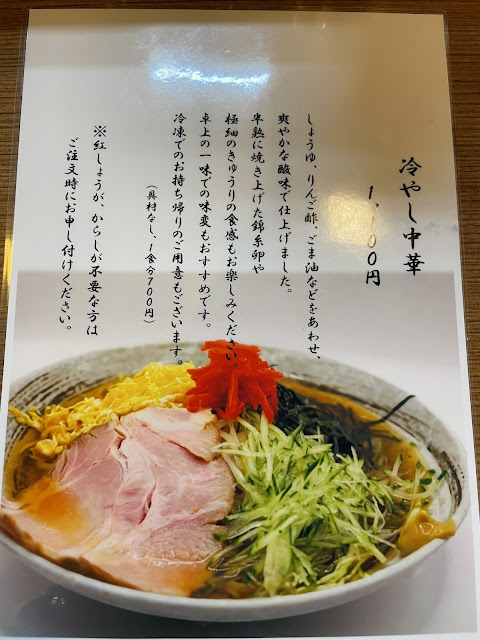 冷やし中華
1,100円
しょうゆ、りんご酢、ごま油などをあわせ、
爽やかな酸味で仕上げました。
半熟に焼き上げた錦糸卵や
極細のきゅうりの食感もお楽しみください。
卓上の一味での味変もおすすめです。
冷凍でのお持ち帰りのご用意もございます。
(具材なし、1食分700円)
※紅しょうが、からしが不要な方は
ご注文時にお申し付けください。